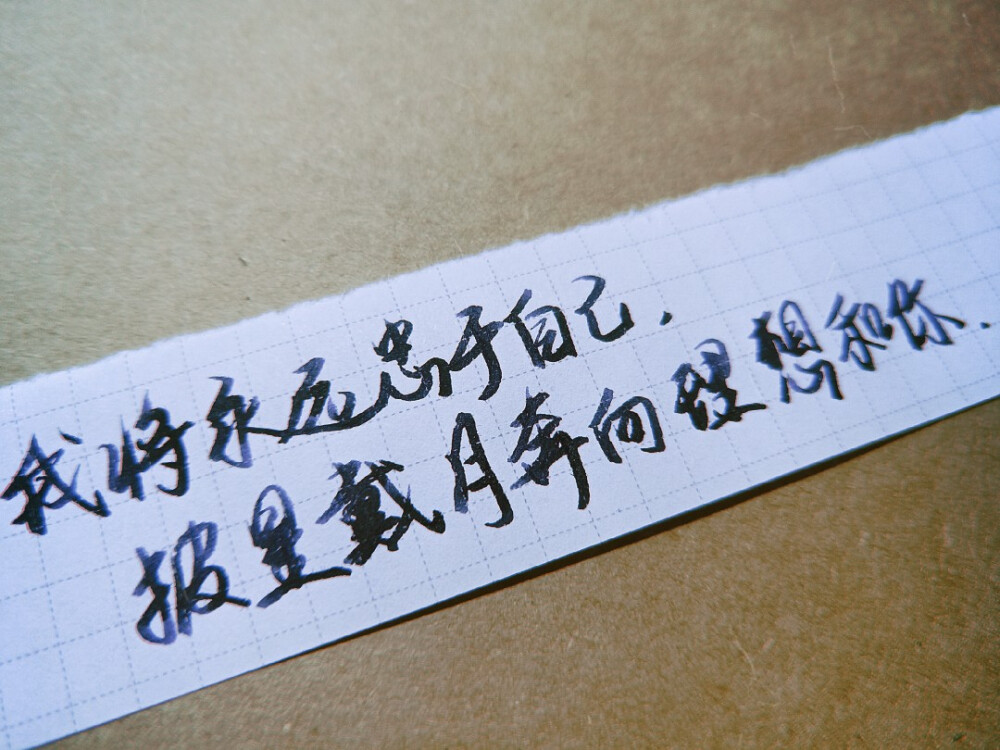 我将永远忠于自己.
披星戴月奔向理想和你.